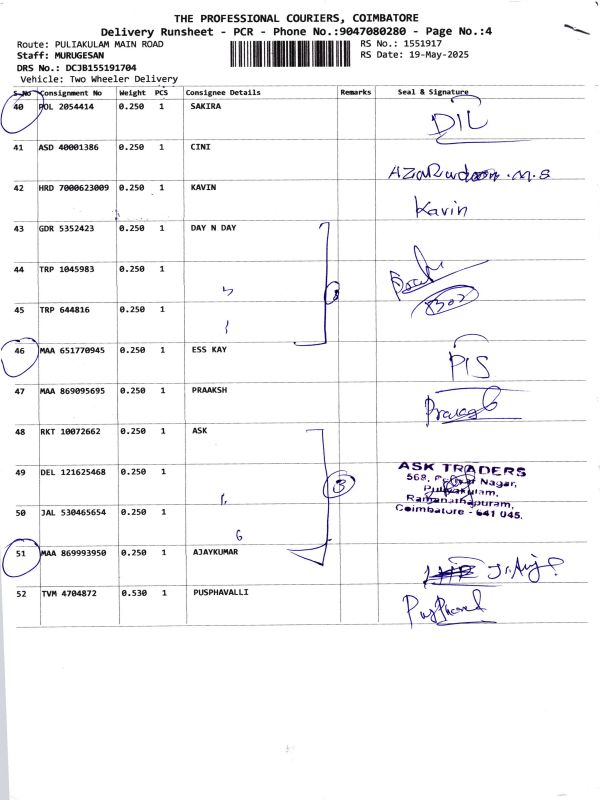 THE PROFESSIONAL COURIERS, COIMBATORE
Delivery Runsheet - PCR - Phone No.:9047080280 - Page No.:4
Route: PULIAKULAM MAIN ROAD RS No.: 1551917
Staff: MURUGESAN RS Date: 19-May-2025
DRS No.: DCJB155191704
Vehicle: Two Wheeler Delivery
S.No Consignment No Weight PCS Consignee Details Remarks Seal & Signature
40 POL 2054414 0.250 1 SAKIRA
DIL
41 ASD 40001386 0.250 1 CINI
42 HRD 7000623009 0.250 1 KAVIN
Kavin
43 GDR 5352423 0.250 1 DAY N DAY
44 TRP 1045983 0.250 1
45 TRP 644816 0.250 1
46 MAA 651770945 0.250 1 ESS KAY
PIS
47 MAA 869095695 0.250 1 PRAAKSH
48 RKT 10072662 0.250 1 ASK
49 DEL 121625468 0.250 1
3
ASK TRADERS
568, Nagar,
Puliyakulam,
Ramanathapuram,
Coimbatore - 641 045.
50 JAL 530465654 0.250 1
51 MAA 869993950 0.250 1 AJAYKUMAR
52 TVM 4704872 0.530 1 PUSPHAVALLI